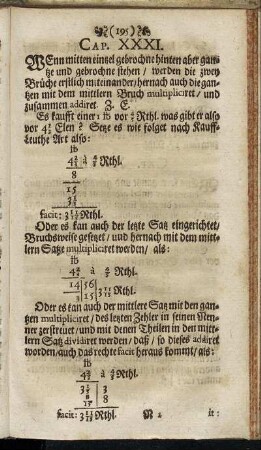 (195)
CAP. XXXI.
WEnn mitten eintzel gebrochne hinten aber gan-
tze und gebrochne stehen / werden die zwey
Brüche erstlich miteinander / hernach auch die gan-
tzen mit dem mittlern Bruch multipliciret / und
zusammen addiret. Z. E.
Es kaufft einer 1 lb vor ⅘ Rthl. was gibt er also
vor Elen Setze es wie folget nach Kauff-
Leuthe Art also:
lb
à Rthl.
8
15
facit: Rthl.
Oder es kan auch der letzte Satz eingerichtet /
Bruchsweise gesetzet / und hernach mit dem mitt-
lern Satze multipliciret werden / als:
lb
à Rthl.
14 | 56
3 | 15 Rthl.
Oder es kan auch der mittlere Satz mit den gan-
tzen multipliciret / des letzten Zehler in seinen Nen-
ner zerstreuet / und mit denen Theilen in den mitt-
lern Satz dividiret werden / daß / so dieses addiret
worden / auch das rechte facit heraus kommt / als:
lb
à Rthl.
3
8
facit: Rthl. it: